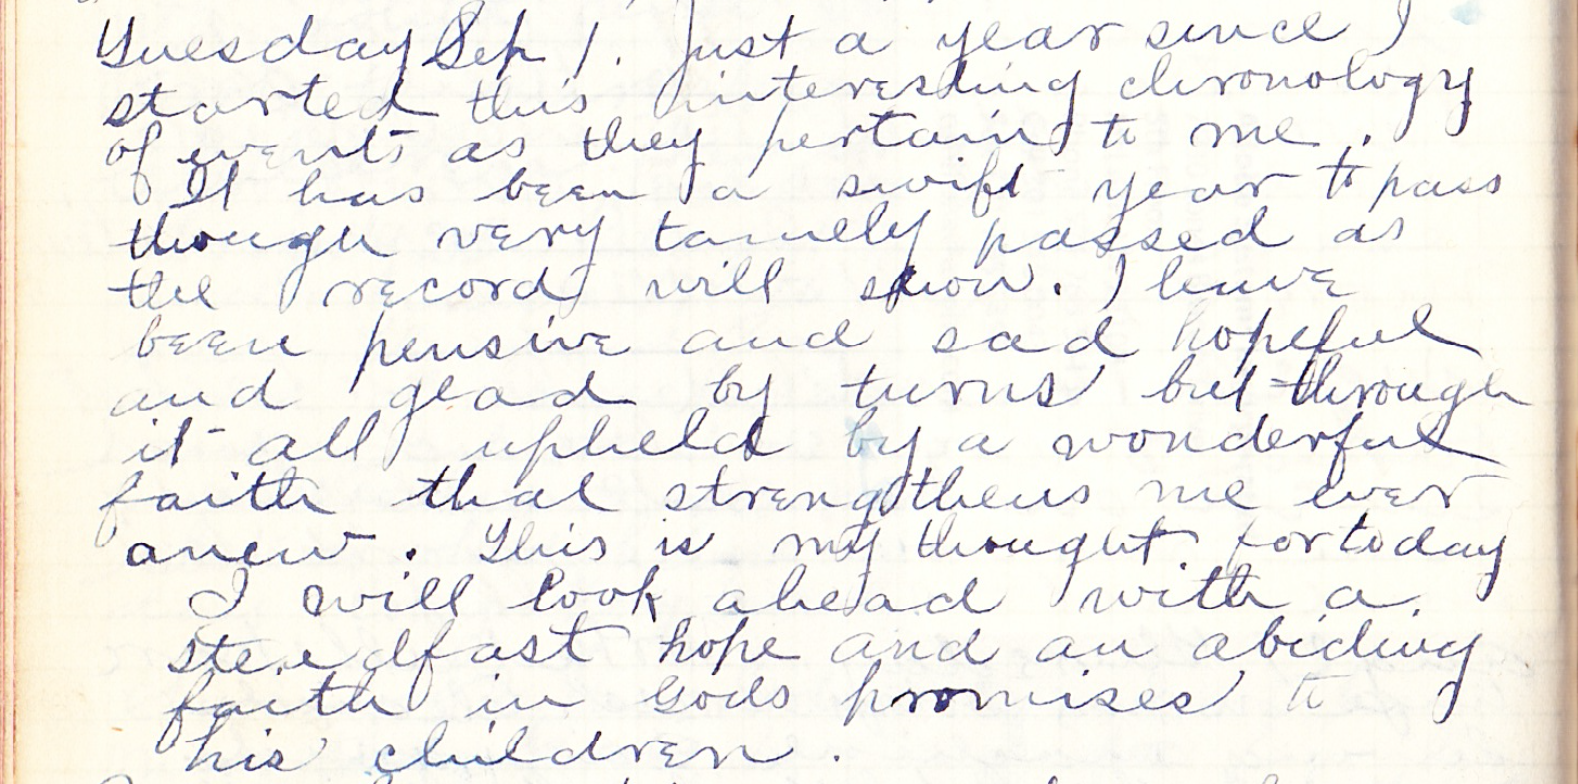 Tuesday Sep 1. Just a year since I
started this interesting chronology
of events as they pertain to me.
It has been a swift year to pass
though very tamely passed as
the record will show. I have
been pensive and sad hopeful
and glad by turns but through
it all upheld by a wonderful
faith that strengthens me ever
anew. This is my thought for today
I will look ahead with a
steadfast hope and an abiding
faith in Gods promises to
his children.